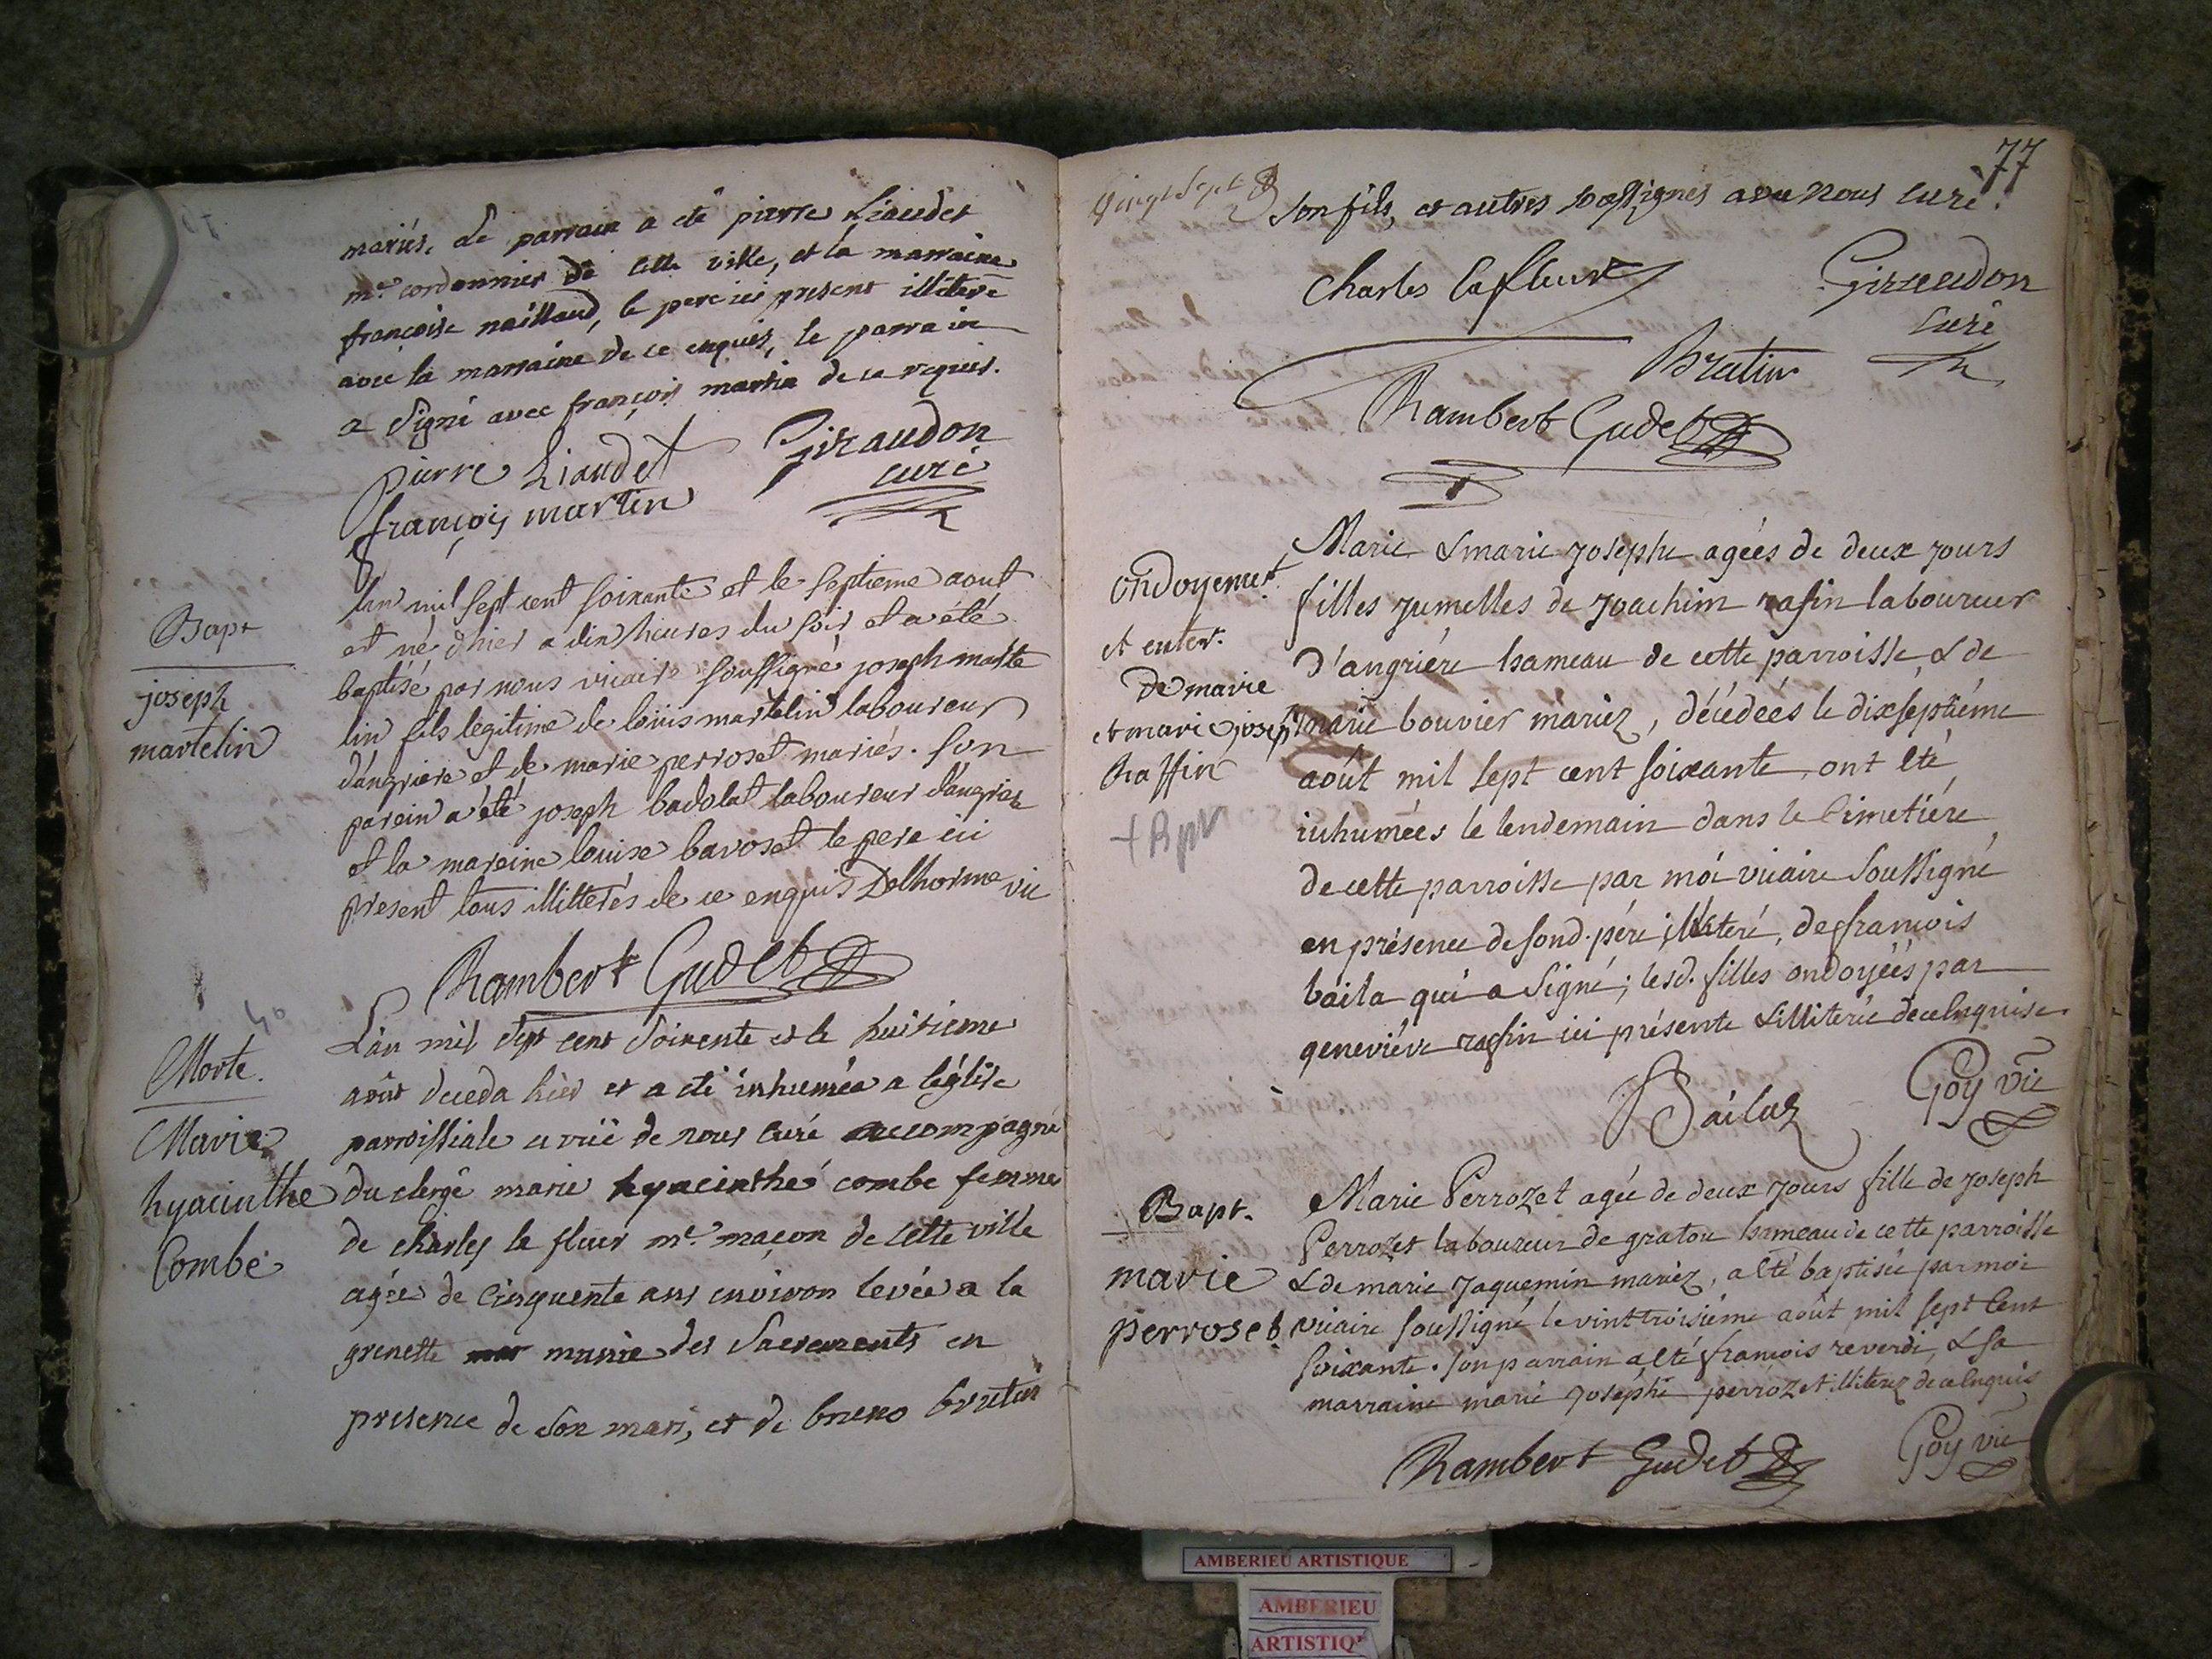 mariés, le parrain a eté pierre Liaudet
me. cordonnier de cette ville, et la marraine
françoise naillaud, le pere ici present illiteré
avec la marraine de ce enquis, le parrain
a Signé avec françois martin de ce requis.
pierre Liaudet
Giraudon
curé
françois martin
Bapt
joseph
martelin
Lan mil sept cent soixante et le septieme aout
et né d'hier a dix heures du soir et a été
baptisé par nous vicaire soussigné joseph marte
lin fils legitime de loüis martelin laboureur
d'angriere et de marie perroset mariés. son
parein a été joseph badolat laboureur d'angriere
et la mareine louise bavoset le pere ici
present tous illitterés de ce enquis Delhorme vic
Rambert Gudet
40
Morte.
Marie
hyacinthe
Combe
L'an mil sept cent soixente et le huitieme
août deceda hier et a eté inhumée a léglise
parroissiale a vüe de nous curé accompagné
du clergé marie hyacinthe combe femme
de charles la fleur me. maçon de cette ville
agée de Cinquente ans environ levée a la
grenette munie des Sacrements en
presence de son mari, et de bruno bratin
77
Son fils, et autres soussignes avec nous curé.
Charles lafleur
Giraudon
curé
Bratin
Rambert Gudet
ondoyement
et enter.
De marie
et marie joseph
Raffin
+ Bpt
Marie & marie Josephe agées de deux jours
filles jumelles de Joachim rafin laboureur
D'angriére hameau de cette parroisse & de
marie bouvier mariez, décédées le dixseptiéme
août mil sept cent soixante, ont eté
inhumées le lendemain dans le Cimetiére
de cette parroisse par moi vicaire Soussigné
en présence de leur d. pére illiteré, de francois
baila qui a Signé; lesd. filles ondoyées par
geneviéve rafin ici présente & illiterée de ce enquise
Bailaz
Goy vic
Bapt.
marie
perroset
Marie Perrozet agée de deux jours fille de Joseph
Perrozet laboureur de graton hameau de cette parroisse
& de marie Jaquemin mariez, a eté baptisée par moi
vicaire soussigné le vint troisiéme août mil sept Cent
soixante. son parrain a eté francois reverdi, & sa
marraine marie Josephe perrozet illiterez de ce enquis
Rambert Gudet
Goy vic
AMBERIEU ARTISTIQUE
AMBERIEU
ARTISTIQ